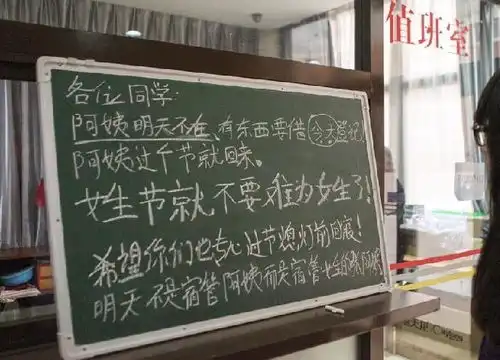 值班室
各位同学:
阿姨明天不在,有东西要借今天登记,
阿姨过个节就回来。
女生节就不要难为女生了!
希望你们也专心过节熄灯前回寝!
明天不是宿管阿姨而是宿管女生